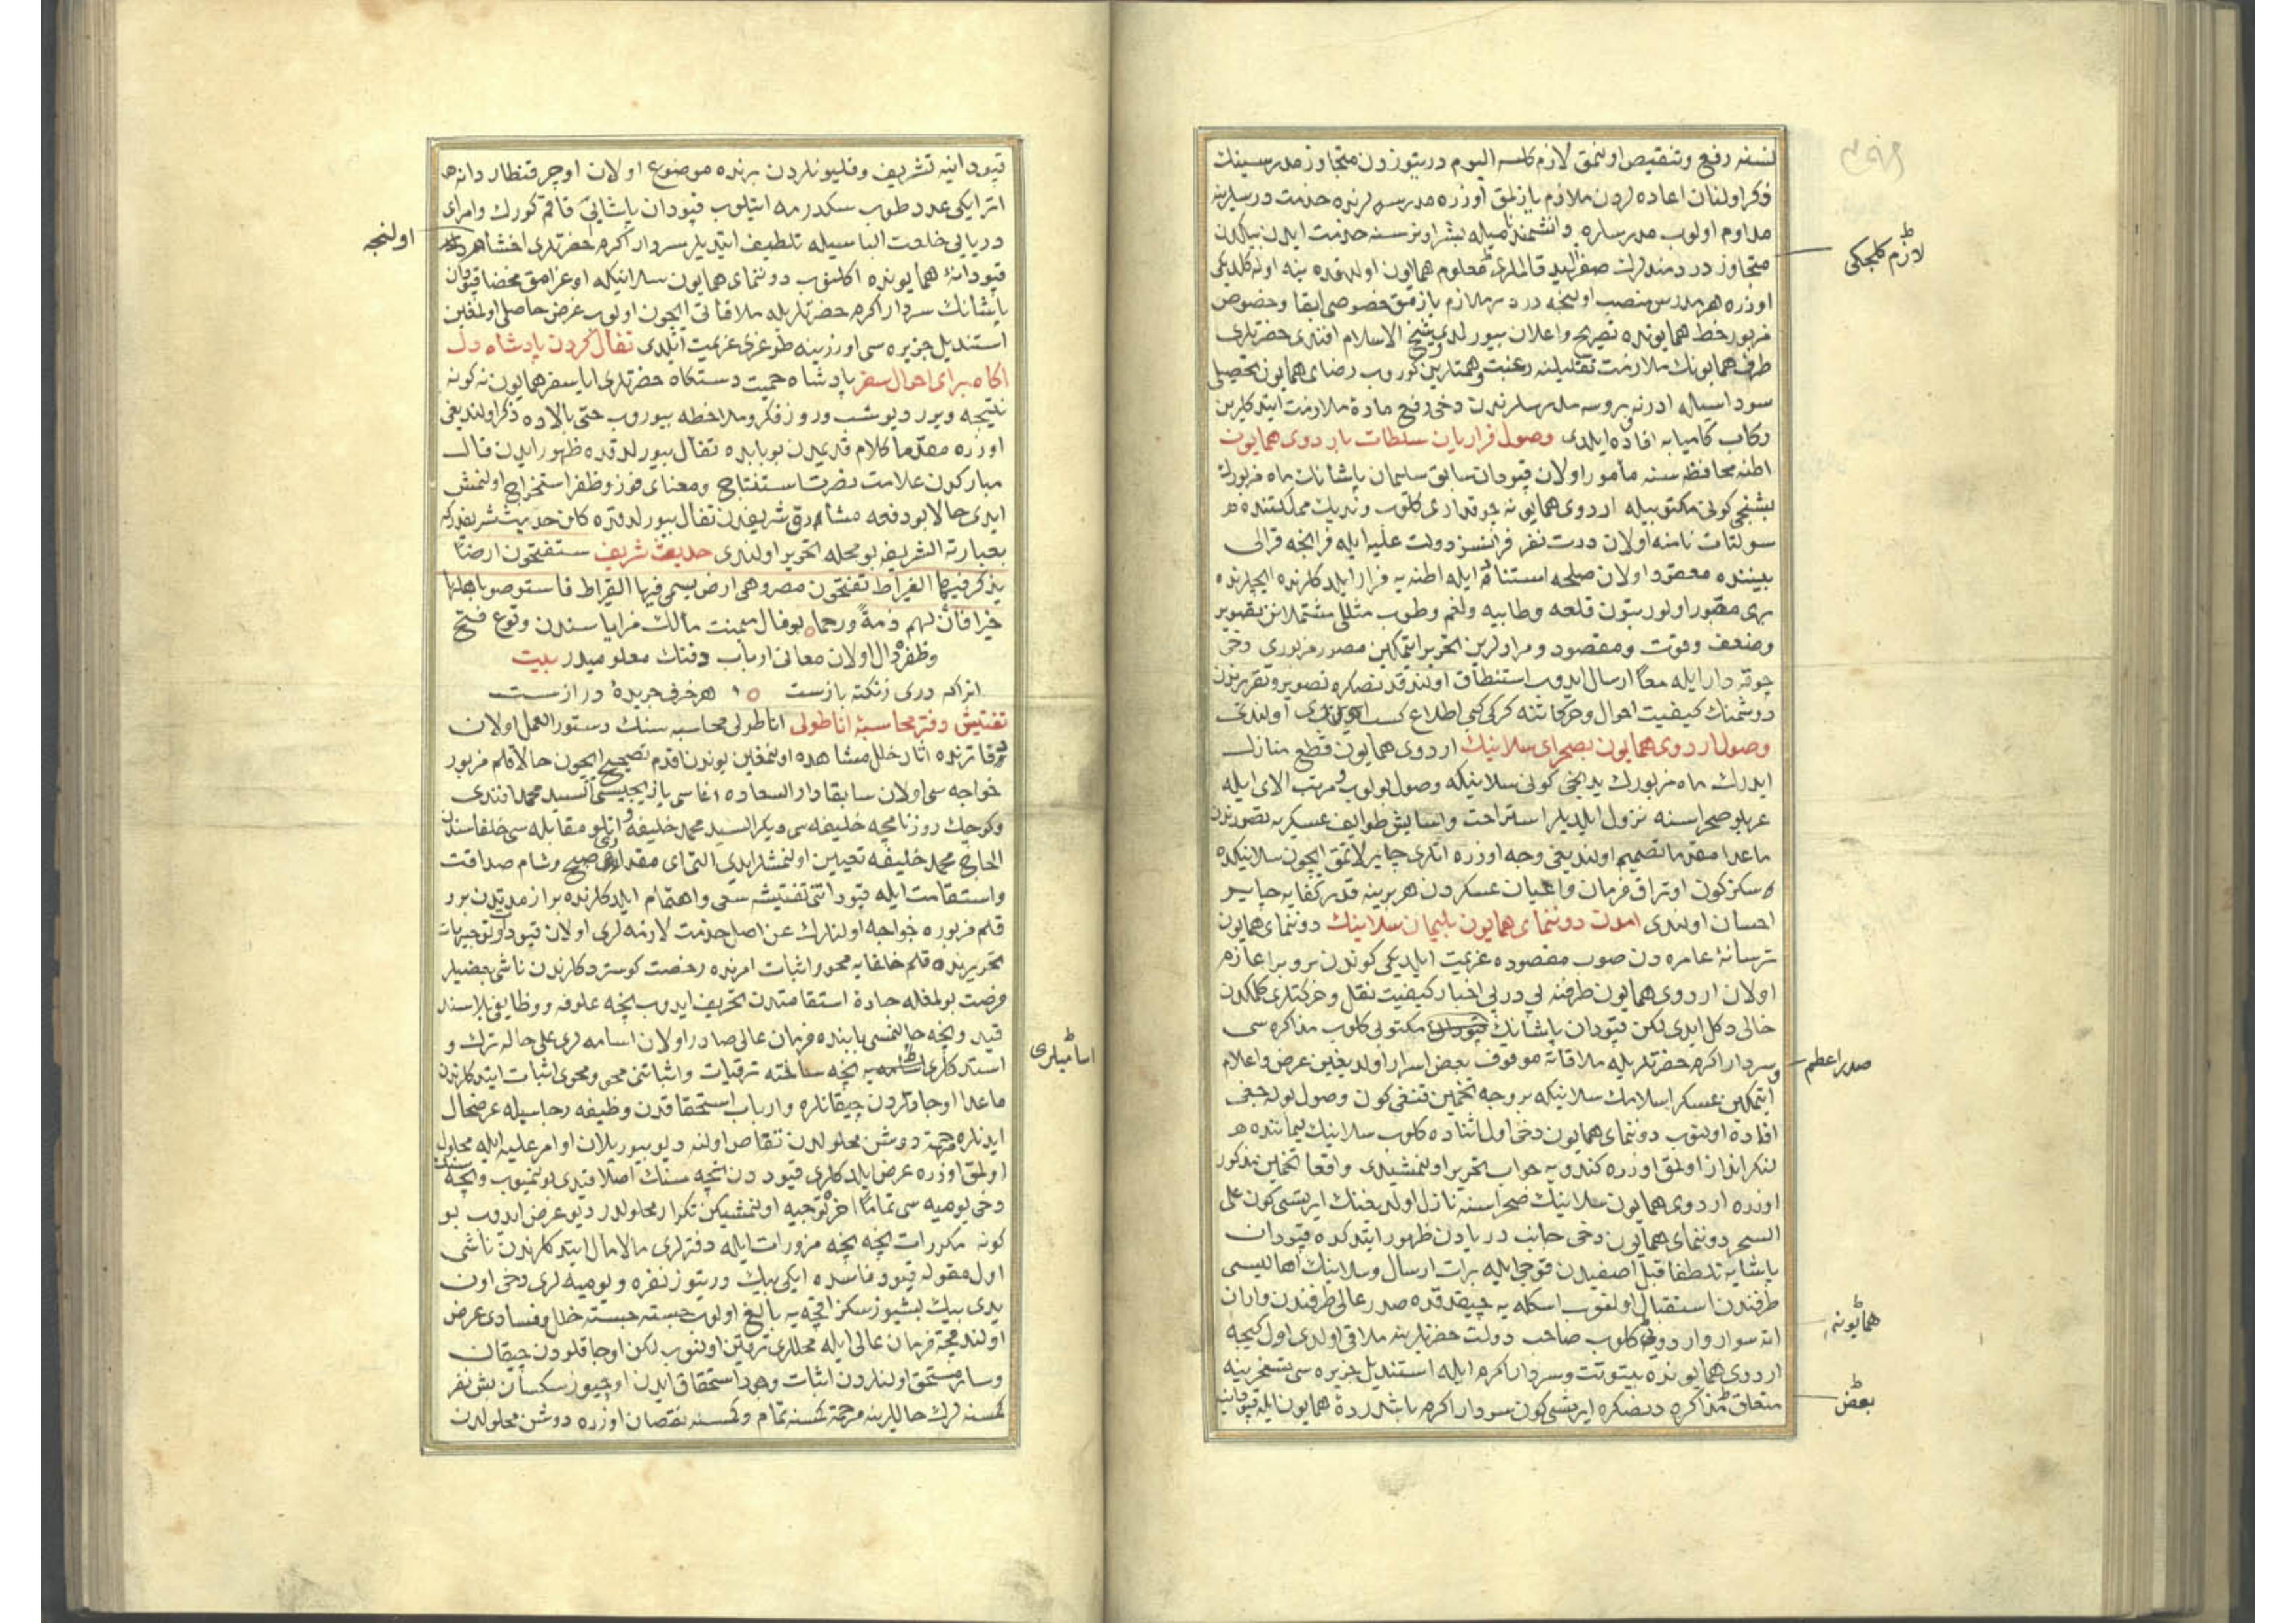 نسنه رفع وتنقيص اولنمق لازم كلسه اليوم دربتيوزدن متجاوز مدرسينك
ذكر اولنان اعاده لردن ملازم يازلمق اوزره مدرسه لرنده خدمت درسلرينه
مداوم اولوب مدرسلره بشر اونر سنه خدمت ايدن بيكدن
متجاوز دردمندلرك صفر اليد قالملرى معلوم همايون اولدقده ينه اوله كلديكى
لازم كلجكى
اوزره هر مدرس منصب اولنجه برر ملازم يازمق خصوصى ابقا وخصوص
مزبور خط همايونده تصريح واعلان بيورلدى شيخ الاسلام افندى حضرتلرى
طرف همايونك ملازمت تقليلنه رغبت وهمتلرين كوروب رضاى همايون تحصيلى
سوداسيله ادرنه وبروسه مدرسلرندن دخى رفع ماده ملازمت ايتدكلرين
ركاب كاميابه افاده ايلدى وصول فراريان سلطات باردوى همايون
اطنه محافظه سنه مأمور اولان قپودان سابق سليمان پاشانك ماه مزبورك
بشنجى كونى مكتوبيله اردوى همايونه چوقدارى كلوب ونديك مملكتنده
سولتات نامنه اولان درت نفر فرانسز دولت عليه ايله فرانچه قرالى
بيننده معقود اولان صلحه استنادا ايله اطنه يه فرار ايلدكلرنده ايچلرنده
برى مصور اولور بتون قلعه وطابيه ولغم وطوب مثللى مشتملاتن تصوير
وضعف وقوت ومقصود ومرادلرين تحرير ايتمكلين مصور مزبورى دخى
چوقه دار ايله معا ارسال ايدوب استنطاق اولندقدنصكره تصوير وتقريرندن
دوشمنك كيفيت احوال وحركاتنه كركى كبى اطلاع كسب اولندى
وصول اردوى همايون بصحراى سلانيك اردوى همايون قطع منازل
ايدرك ماه مزبورك يدنجى كونى سلانيكه وصول بولوب مرتب الاى ايله
صحراسنه نزول ايلديلر استراحت واسايش طوايف عسكريه تصورندن
ماعدا مقدما تصميم اولنديغى وجه اوزره انلرى چايرلاتمق ايچون سلانيكده
سكز كون اوتراق فرمان واعيان عسكردن هر برينه قدر كفايه چاير
احسان اولندى امدن دونماى همايون بليمان سلانيك دونماى همايون
ترسانۀ عامره دن صوب مقصوده عزيمت ايلديكى كوندن برو براعازم
اولان اردوى همايون طرفنه پى درپى اخبار كيفيت نقل وحركتلرى كلمكدن
خالى دكل ايدى لكن قپودان پاشانك مكتوبى كلوب مذاكره سى
وسردار اكرم حضرتلريله ملاقاته موقوف بعض اسرار اولديغين عرض واعلام
صدر اعظم
ايتمكلين عسكر اسلامك سلانيكه بروجه تخمين قنغى كون وصول بوله جغى
افاده اولنوب دونماى همايون دخى اول اثناده كلوب سلانيك ليماننده
لنكر انداز اولمق اوزره كندويه جواب تحرير اولنمشيدى واقعا تخمين مذكور
اوزره اردوى همايون سلانيك صحراسنه نازل اولديغنك ايرتسى كون على
السحر دونماى همايون دخى جانب دريادن ظهور ايتدكده قپودان
پاشايه تلطفا قبل آصفيدن قوجى ايله برات ارسال وسلانيك اهاليسى
طرفندن استقبال اولنوب اسكله يه چيقدقده صدر عالى طرفندن واران
اته سوار واردوى كلوب صاحب دولت حضرتلرينه ملاقى اولدى اول كيجه
همايونه
اردوى همايونده بيتوتت وسردار اكرم ايله استنديل جزيره سى تسخيرينه
متعلق مذاكره دنصكره ايرتسى كون سردار اكرم باشدردۀ همايون ايله
بعض
قپودانيه تشريف وقليونلردن برنده موضوع اولان اوچر قنطار دانه
اتر ايكى عدد طوب سكدرمه اتيلوب قپودان پاشايى قاقم كورك وامراى
دريايى خلعت الباسيله تلطيف ايتديلر سردار اكرم حضرتلرى اخشام
اولنجه
قپودانۀ همايونده اكلنوب دونماى همايون سلانيكه اوغرامق محضا قپودان
پاشانك سردار اكرم حضرتلريله ملاقاتى ايچون اولوب غرض حاصل اولمغين
استنديل جزيره سى اوزرينه طوغرى عزيمت ايلدى تفأل كردن پادشاه دل
اكاه براى احوال سفر پادشاه حميت دستكاه حضرتلرى ايا سفر همايون نه كونه
نتيجه ويرر ديو شب وروز فكر وملاحظه بيوروب حتى بالاده ذكر اولنديغى
اوزره مقدما كلام قديمدن بوبابده تفأل بيورلدقده ظهور ايدن فال
مباركدن علامت نصرت استنتاج ومعناى فوز وظفر استخراج اولنمش
ايدى حالا بو دفعه مشارق شريفدن تفأل بيورلدقده كلن حديث شريفدركه
بعبارته الشريفه بو محله تحرير اولندى حديث شريف ستفتحون ارضا
يذكر فيها القيراط تفتحون مصر وهى ارض يسمى فيها القيراط فاستوصوا باهلها
خيرا فان لهم ذمة ورحما بوفال ميمنت مآلك مزاياسندن وقوع فتح
وظفره دال اولان معانى ارباب دقتك معلوميدر بيت
انرا كه درى زنكته بازست هر حرف جريدۀ درازست
تفتيش دفتر محاسبۀ اناطولى اناطولى محاسبه سنك دستور العمل اولان
دفاترنده اثار خلل مشاهده اولنمغين بوندن اقدم تصحيح ايچون حالا قلم مزبور
خواجه سى اولان سابقا دار السعاده اغاسى يازيجيسى السيد محمد افندى
وكوچك روزنامچه خليفه سى ديكر السيد محمد خليفه واتلو مقابله سى خلفاسندن
الحاج محمد خليفه تعيين اولنمشلر ايدى التى اى مقدارى صبح وشام صداقت
واستقامت ايله قيوداتى تفتيشه سعى واهتمام ايلدكلرنده براز مدتدن برو
قلم مزبوره خواجه اولنلرك عن اصل خدمت لازمه لرى اولان قيود وتوجيهات
تحريرنده قلم خلفايه محو واثبات امرنده رخصت كوستردكلرندن ناشى بعضيلر
فرصت بولمغله جادۀ استقامتدن تحريف ايدوب نيجه علوفه ووظايفى بلاسند
قيد ونيجه چالنمسى بابنده فرمان عالى صادر اولان اسامه لرى على حاله ترك و
استدكلرى يه نيجه ساخته ترقيات واثباتنى محو ومحوى اثبات ايتدكلرندن
اساميلرى
ماعدا اوجاقلردن چيقانلره وارباب استحقاقدن وظيفه رجاسيله عرضحال
ايدنلره مرحمة دوشن محلولدن تقاص اولنه ديو بيوريلان اوامر عليه ايله محلول
اولمق اوزره عرض ايلدكلرى قيوددن نيجه سنك اصلا قيدى بولنميوب ونيجه سنك
دخى يوميه سى تماما اخره توجيه اولنمشيكن تكرار محلولدر ديو عرض ايدوب بو
كونه مكررات نيجه نيجه مزورات ايله دفترلرى مالامال ايتدكلرندن ناشى
اول مقوله قيود فاسده ايكى بيك دربتيوز نفره ويوميه لرى دخى اون
يدى بيك بشيوز سكز اقچه يه بالغ اولوب جسته جسته خلل وفسادى عرض
اولندقجه فرمان عالى ايله محللرى ترقين اولنوب لكن اوجاقلودن چيقان
وسائر مستحق اولنلردن اثبات وجود استحقاق ايدن اوچيوز سكسان بش نفر
كمسنه لرك حاللرينه مرحمة كمسنه تمام وكمسنه نقصان اوزره دوشن محلولدن